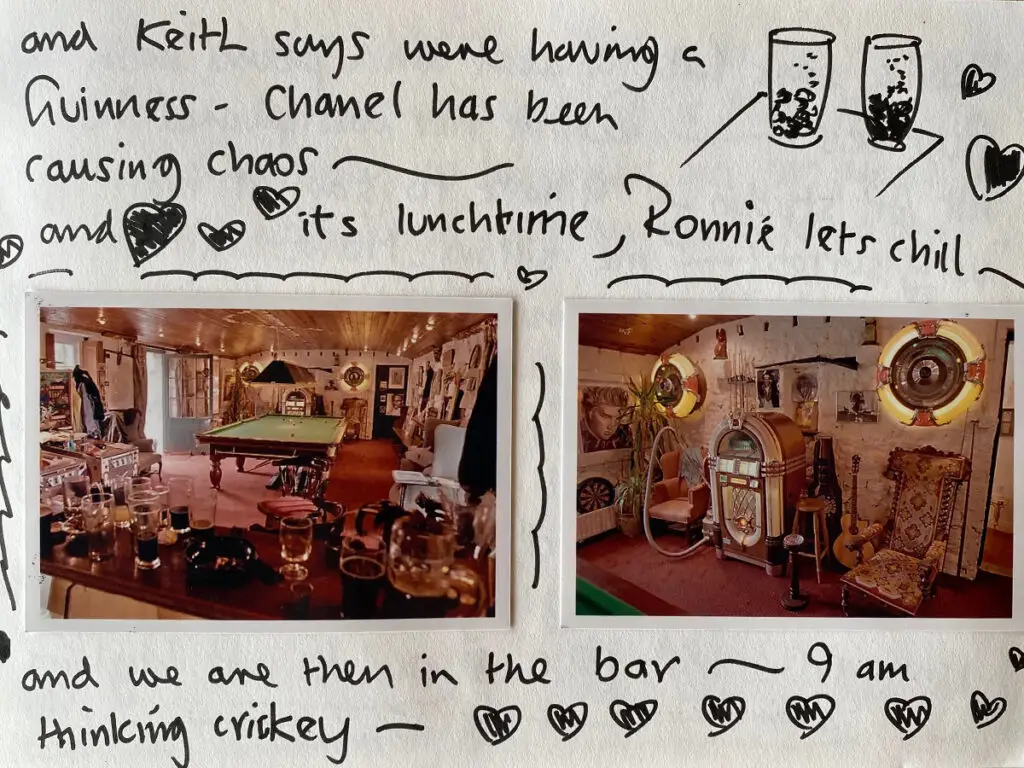 and Keith says were having a
Guinness - Chanel has been
causing chaos
and it's lunchtime, Ronnie lets chill
and we are then in the bar ~ 9 am
thinking crickey -